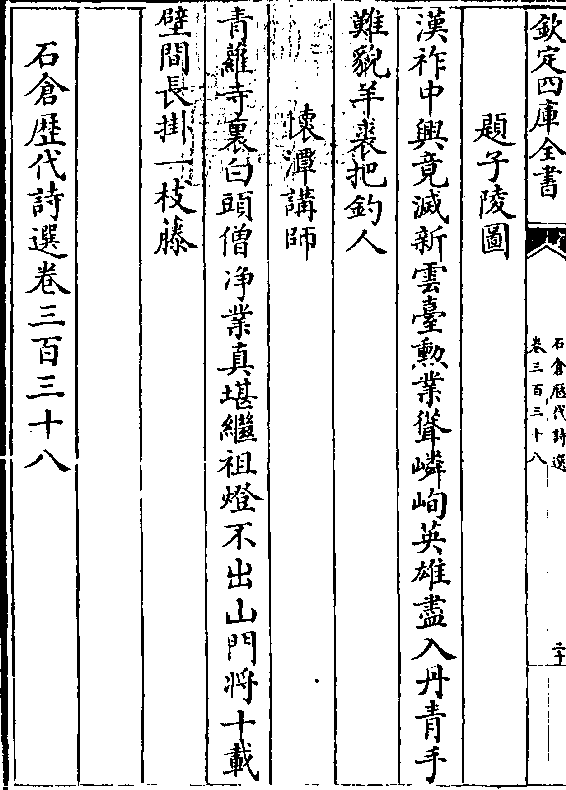 欽定四庫全書
石倉歷代詩選
卷三百三十八
二十
題子陵圖
漢祚中興竟滅新雲臺勲業聳嶙峋英雄盡入丹青手
難貌羊裘把釣人
懷潭講師
青蘿寺裏白頭僧净業真堪繼祖燈不出山門將十載
壁間長掛一枝藤
石倉歷代詩選卷三百三十八